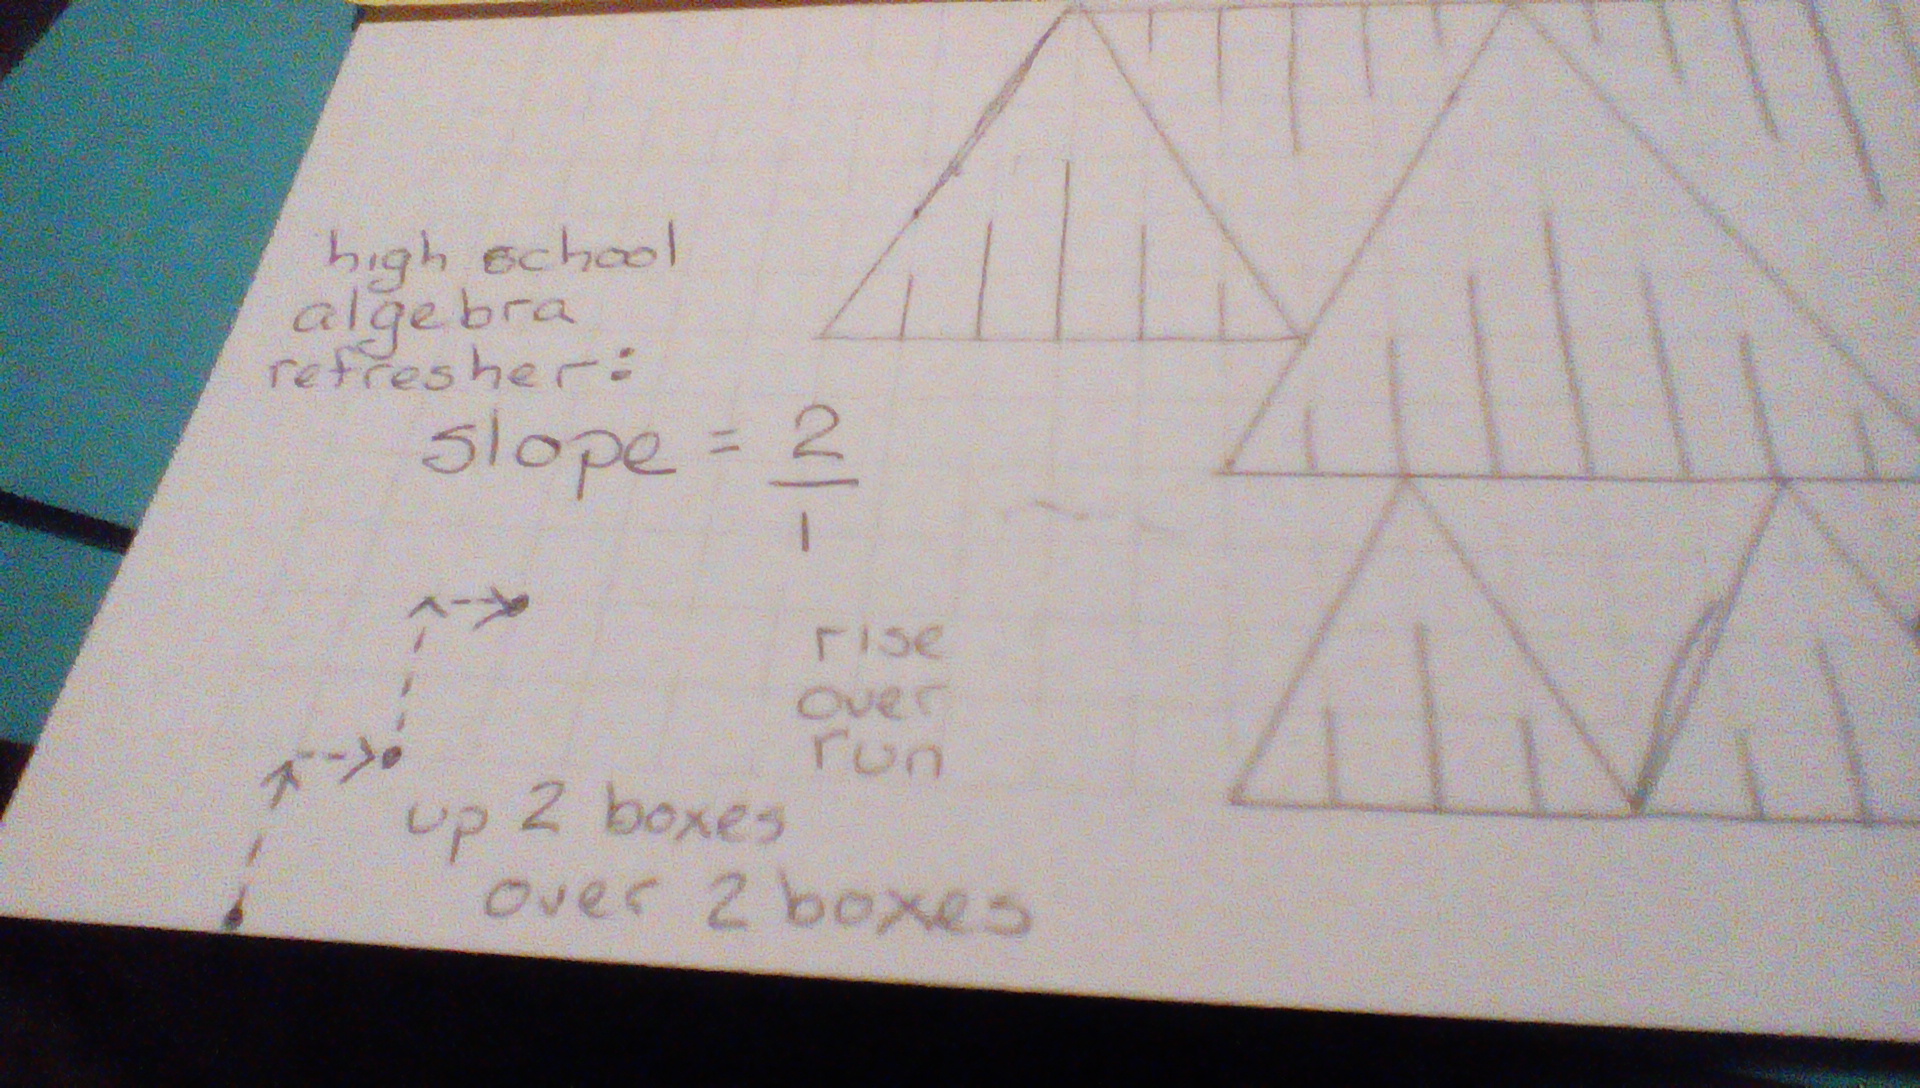 high school
algebra
refresher:
slope = 2
1
rise
over
run
up 2 boxes
over 2 boxes